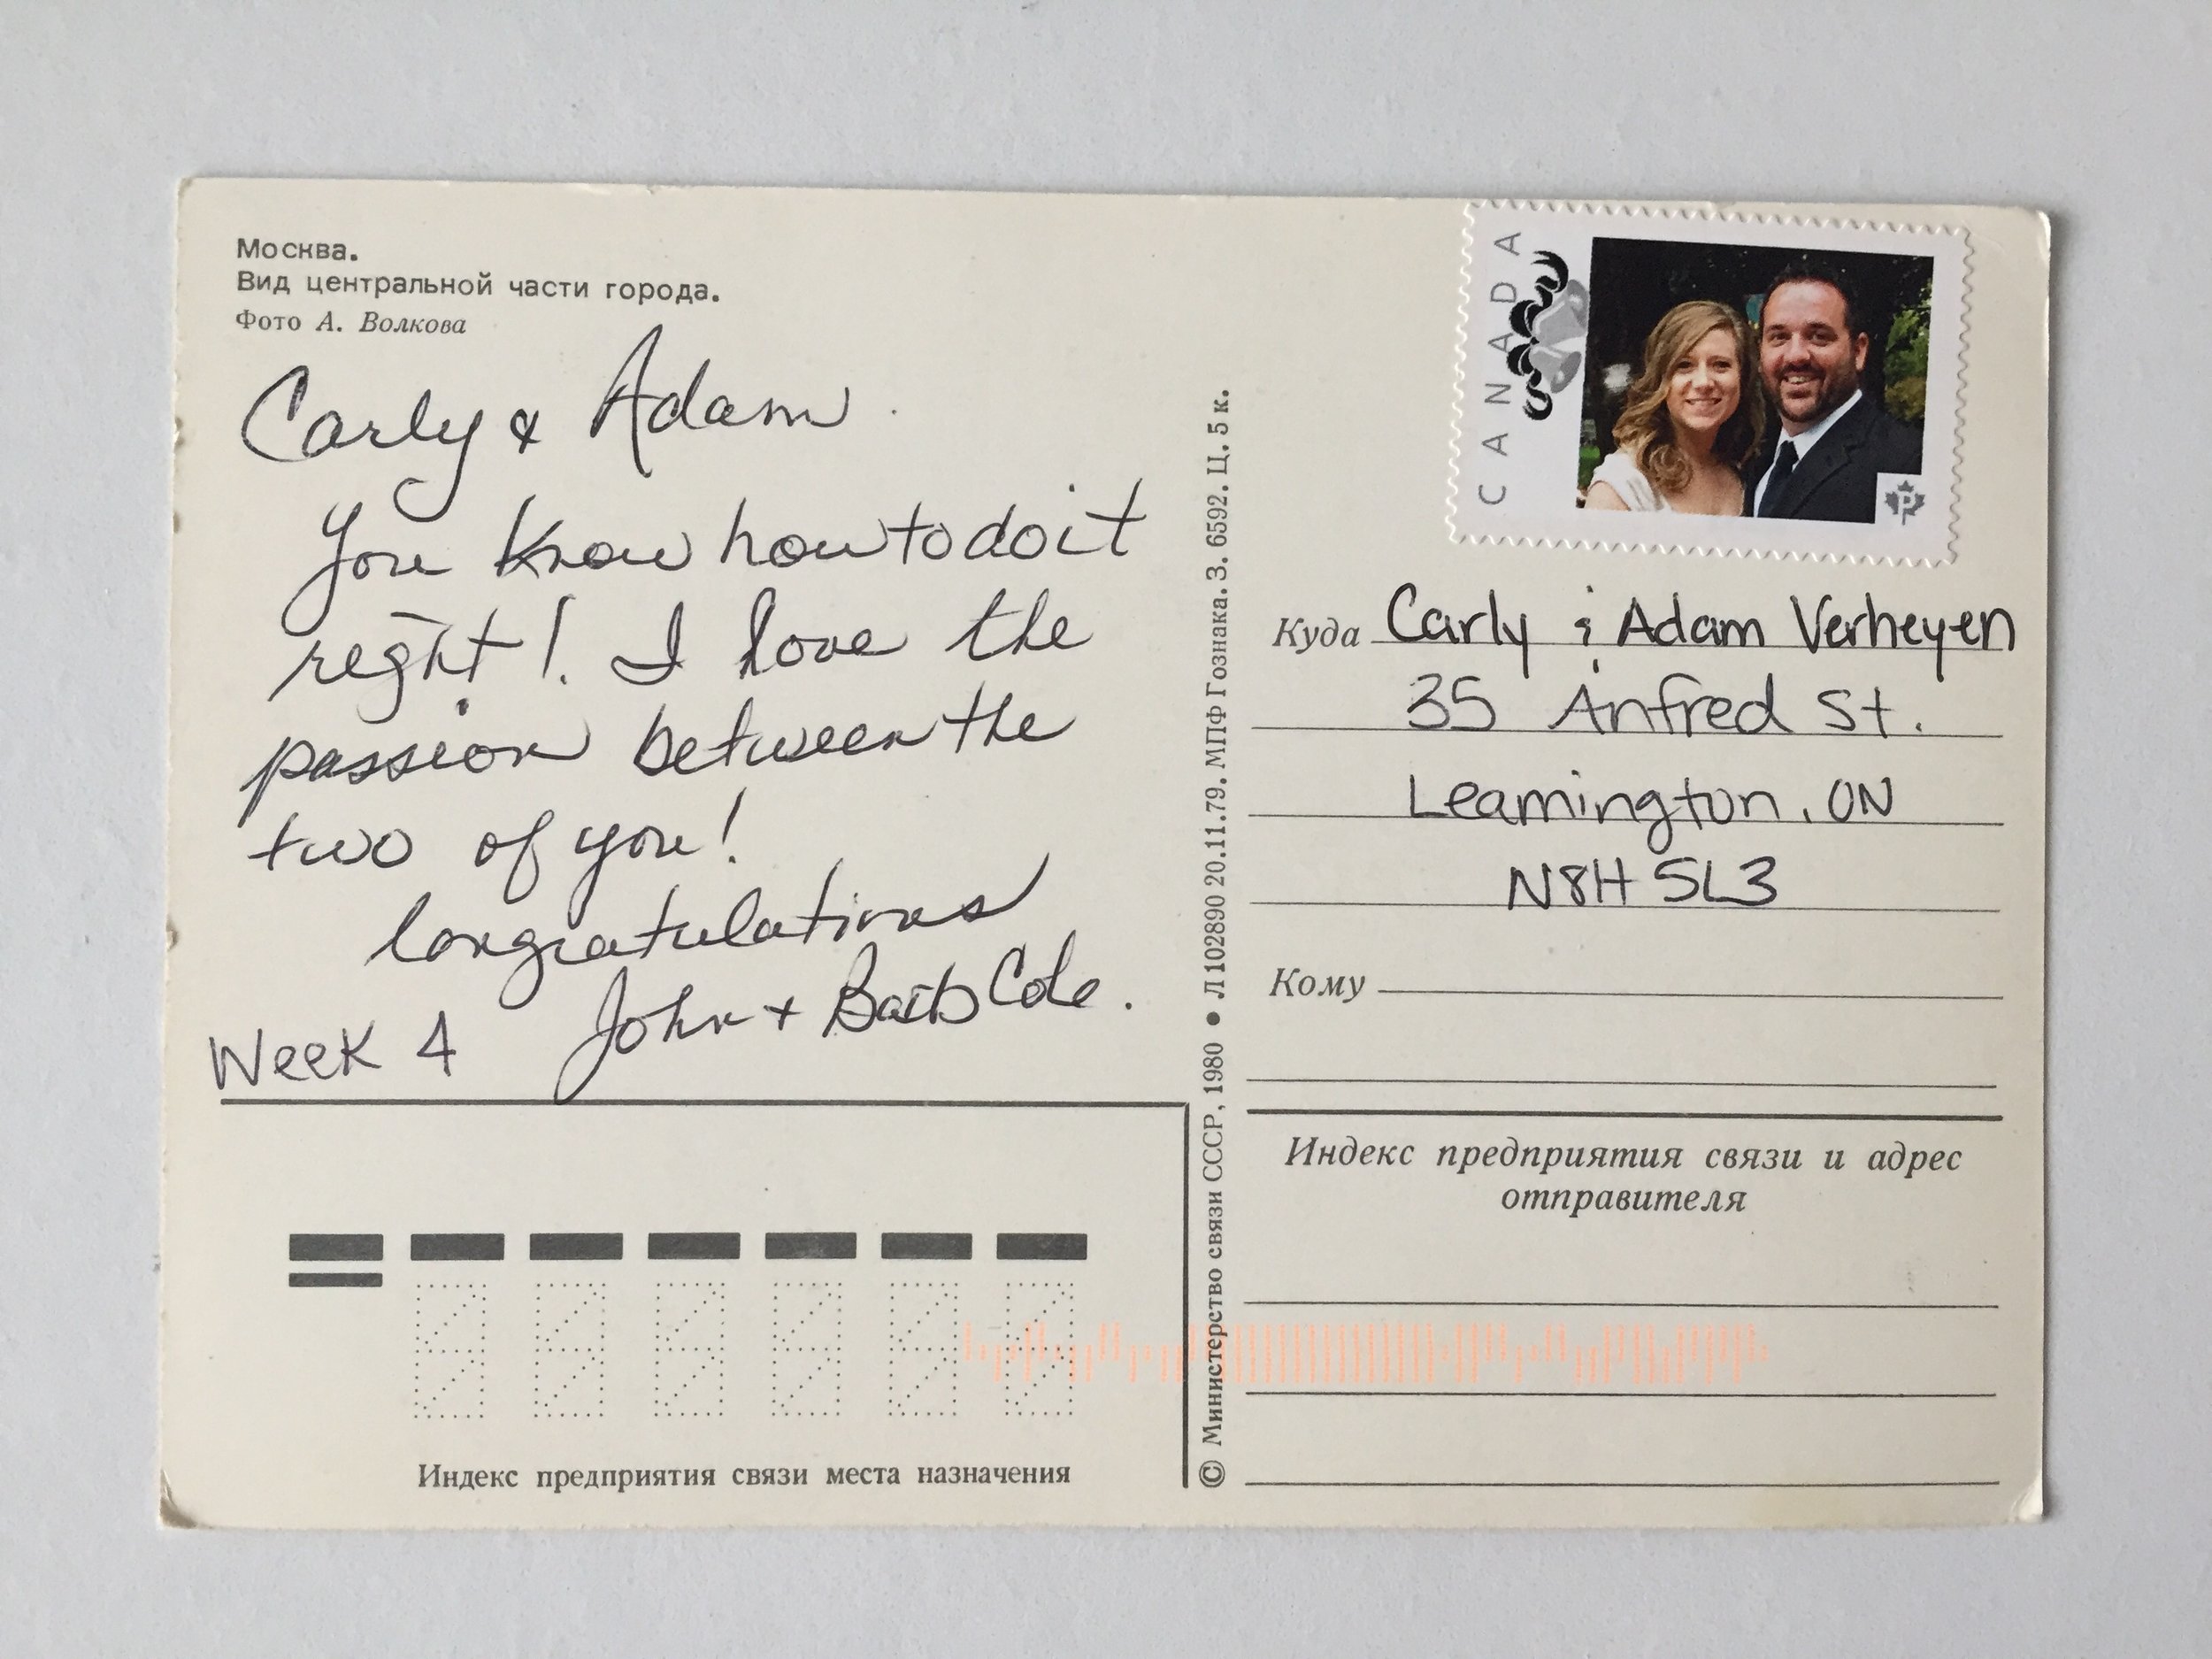 Москва.
Вид центральной части города.
Фото А. Волкова
Carly & Adam
You know how to do it
right! I love the
passion between the
two of you!
Congratulations
John + Barb Cole.
Week 4
Индекс предприятия связи места назначения
© Министерство связи СССР, 1980 • Л 102890 20.11.79. МПФ Гознака. З. 6592. Ц. 5 к.
CANADA
P
Куда Carly & Adam Verheyen
35 Anfred St.
Leamington, ON
N8H 5L3
Кому
Индекс предприятия связи и адрес
отправителя